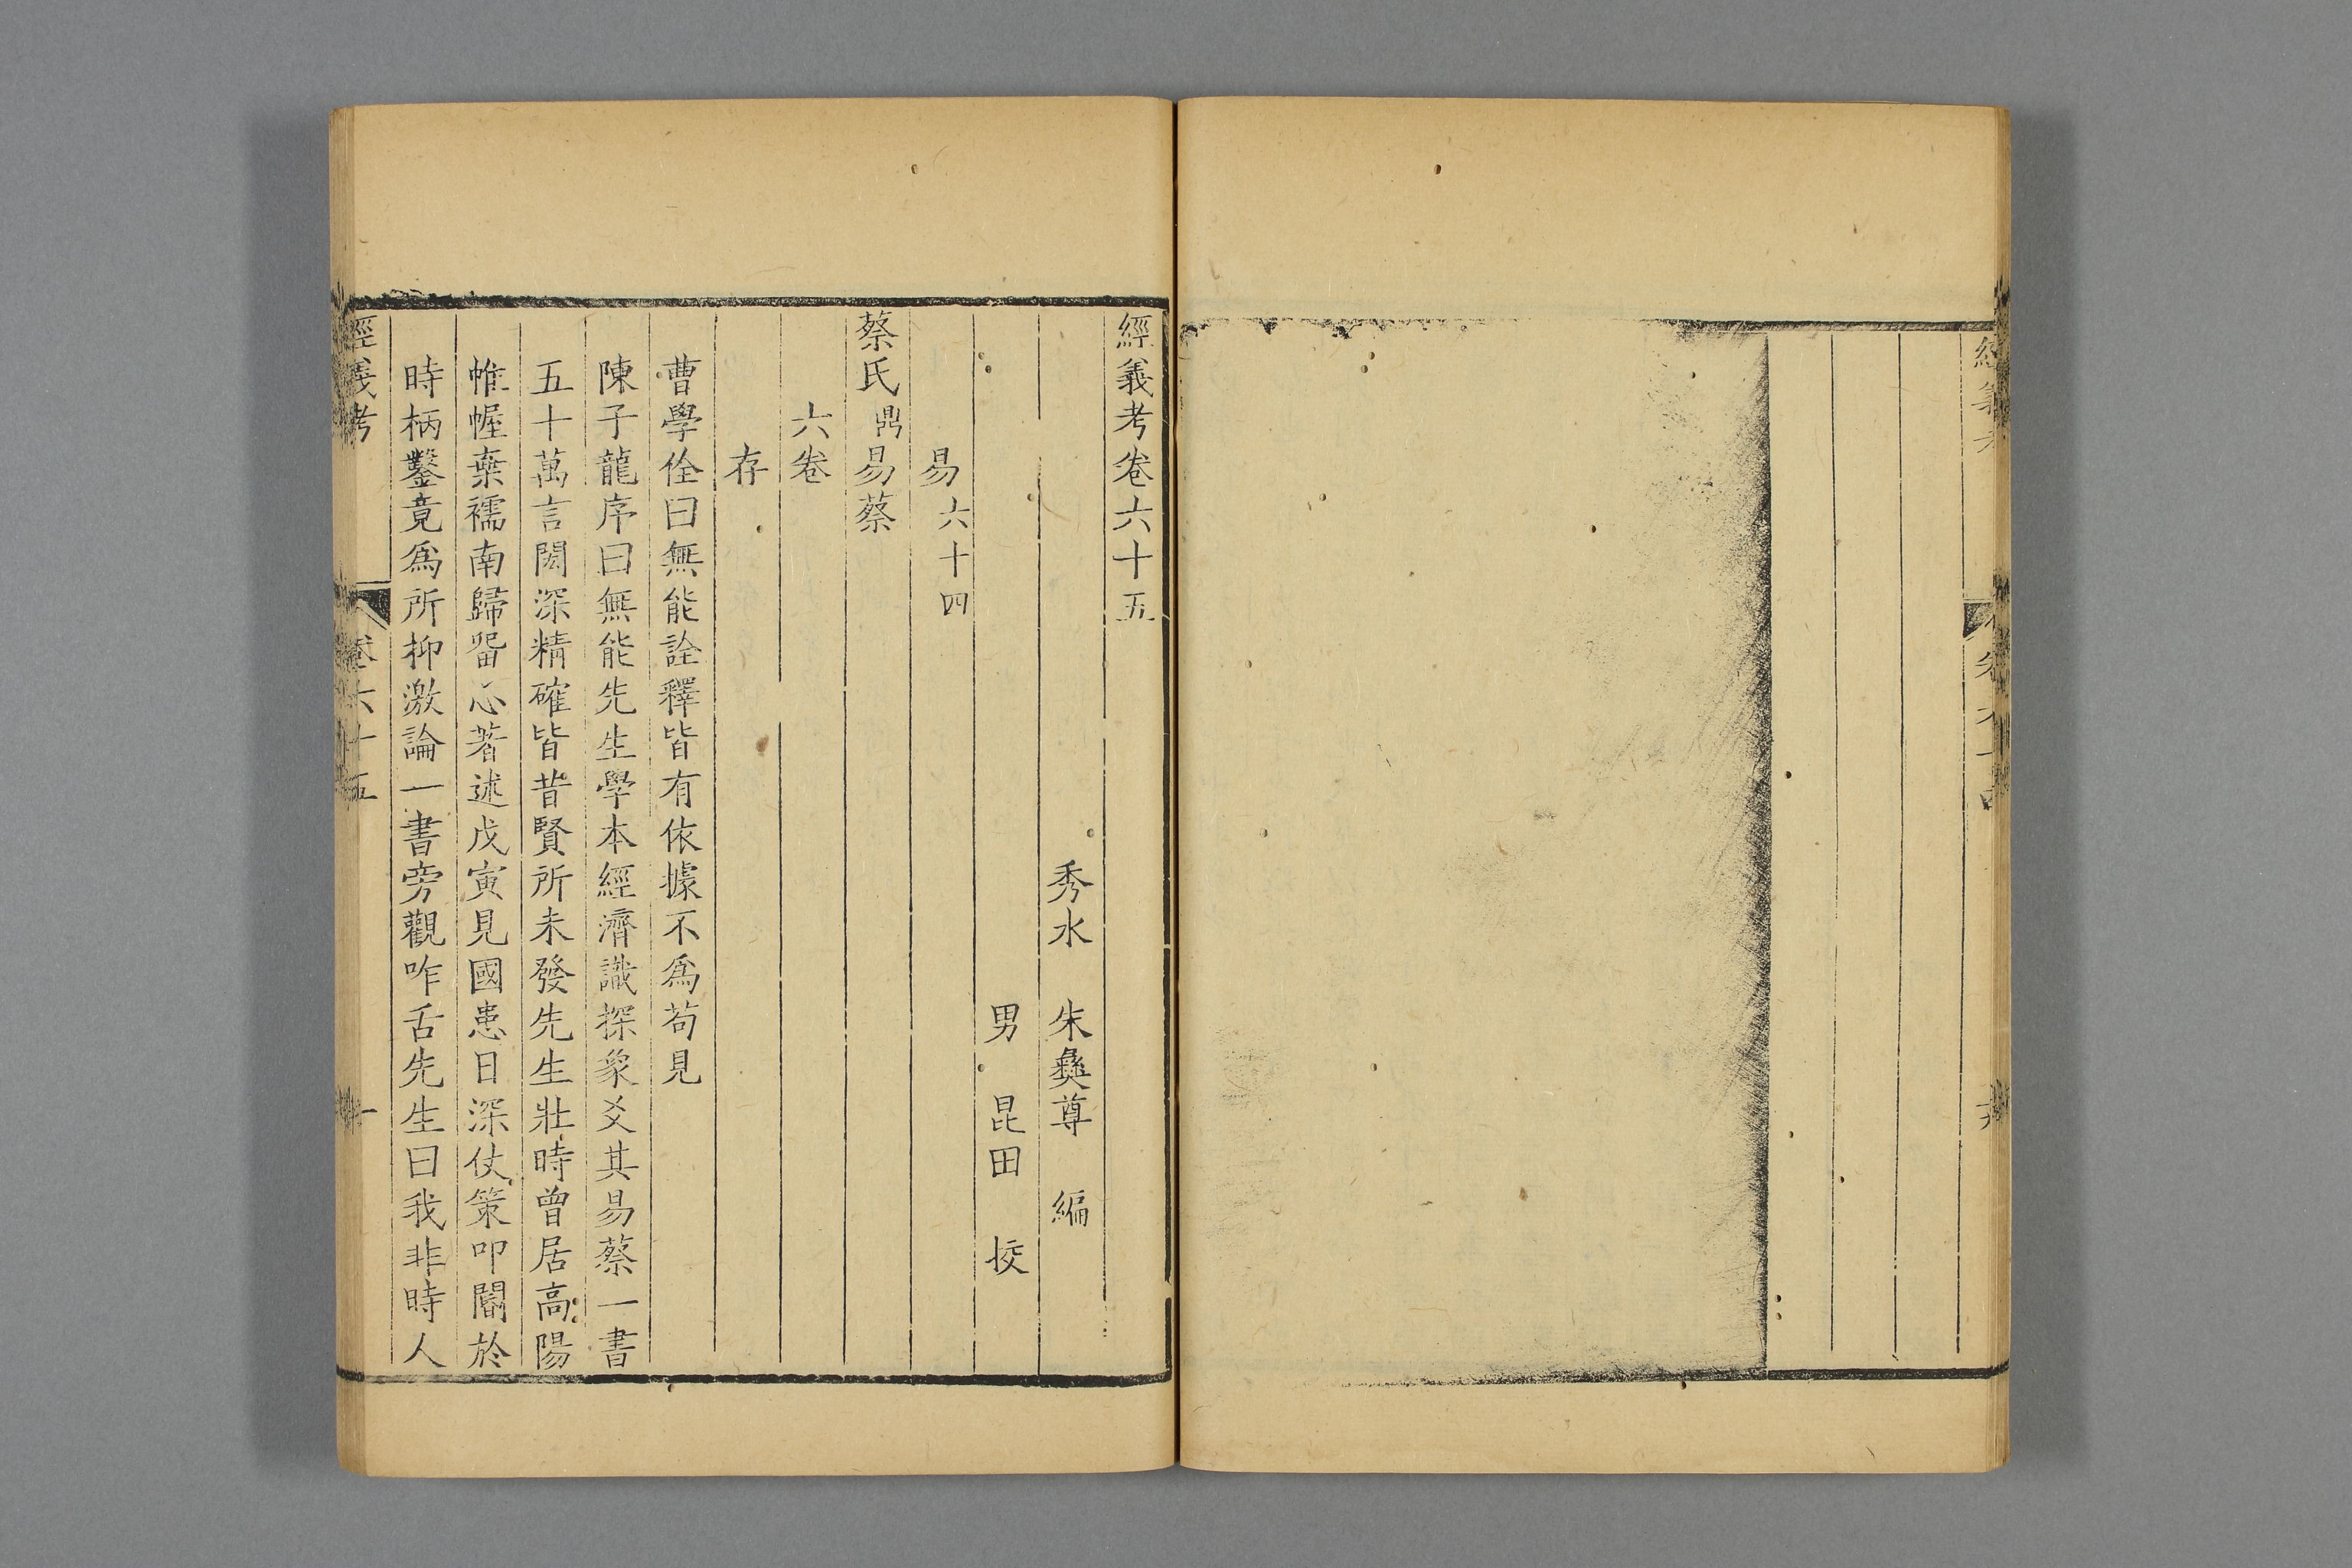 經義考卷六十五
秀水 朱彝尊 編
男 昆田 挍
易六十四
蔡氏鼎易蔡
六卷
存
曹學佺曰無能詮釋皆有依據不爲茍見
陳子龍序曰無能先生學本經濟識探象爻其易蔡一書
五十萬言閎深精確皆昔賢所未發先生壯時曾居高陽
帷幄棄襦南歸畱心著述戊寅見國患日深仗策叩閽於
時柄鑿竟爲所抑激論一書旁觀咋舌先生曰我非時人
經義考 卷六十五 一